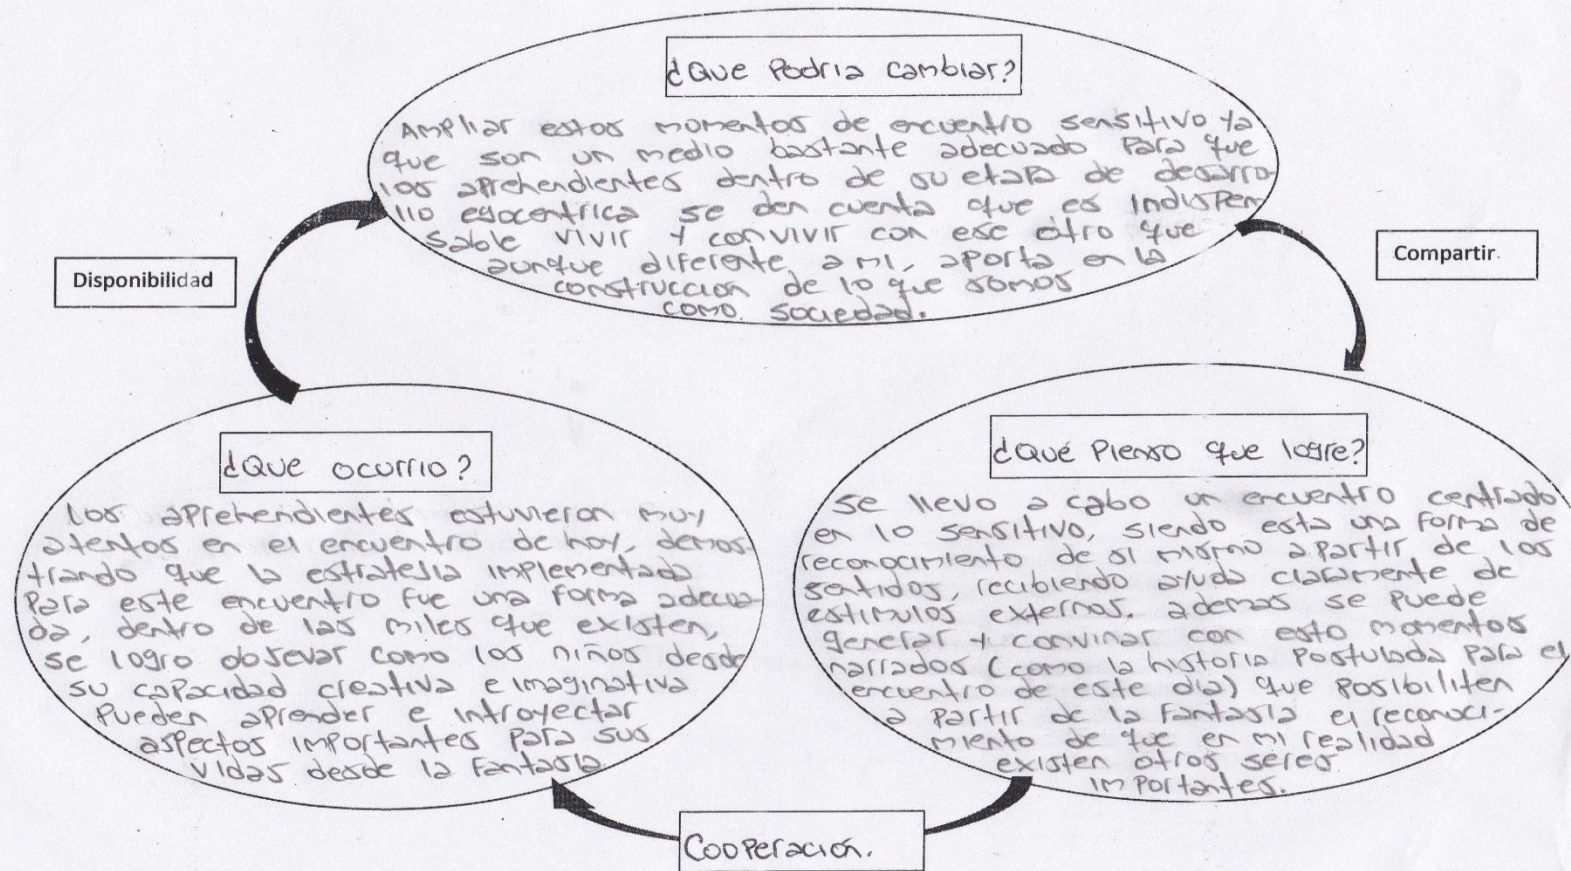 ¿Que Podria cambiar?
Ampliar estos momentos de encuentro sensitivo ya
que son un medio bastante adecuado para que
los aprehendientes dentro de su etapa de desarro-
llo egocentrica se den cuenta que es indispen
sable vivir y convivir con ese otro que
aunque diferente a mi, aporta en la
construccion de lo que somos
como sociedad.
Disponibilidad
Compartir.
¿Que ocurrio?
Los aprehendientes estuvieron muy
atentos en el encuentro de hoy, demos-
trando que la estrategia implementada
para este encuentro fue una forma adecua
da, dentro de las miles que existen,
se logro obsevar como los niños desde
su capacidad creativa e imaginativa
pueden aprender e introyectar
aspectos importantes para sus
vidas desde la fantasia.
¿Qué Pienso que logre?
Se llevo a cabo un encuentro centrado
en lo sensitivo, siendo esta una forma de
reconocimiento de si mismo a partir de los
sentidos, recibiendo ayuda claramente de
estimulos externos. ademas se puede
generar y convinar con esto momentos
narrados (como la historia postulada para el
encuentro de este dia) que posibiliten
a partir de la fantasia el reconoci-
miento de que en mi realidad
existen otros seres
importantes.
Cooperación.